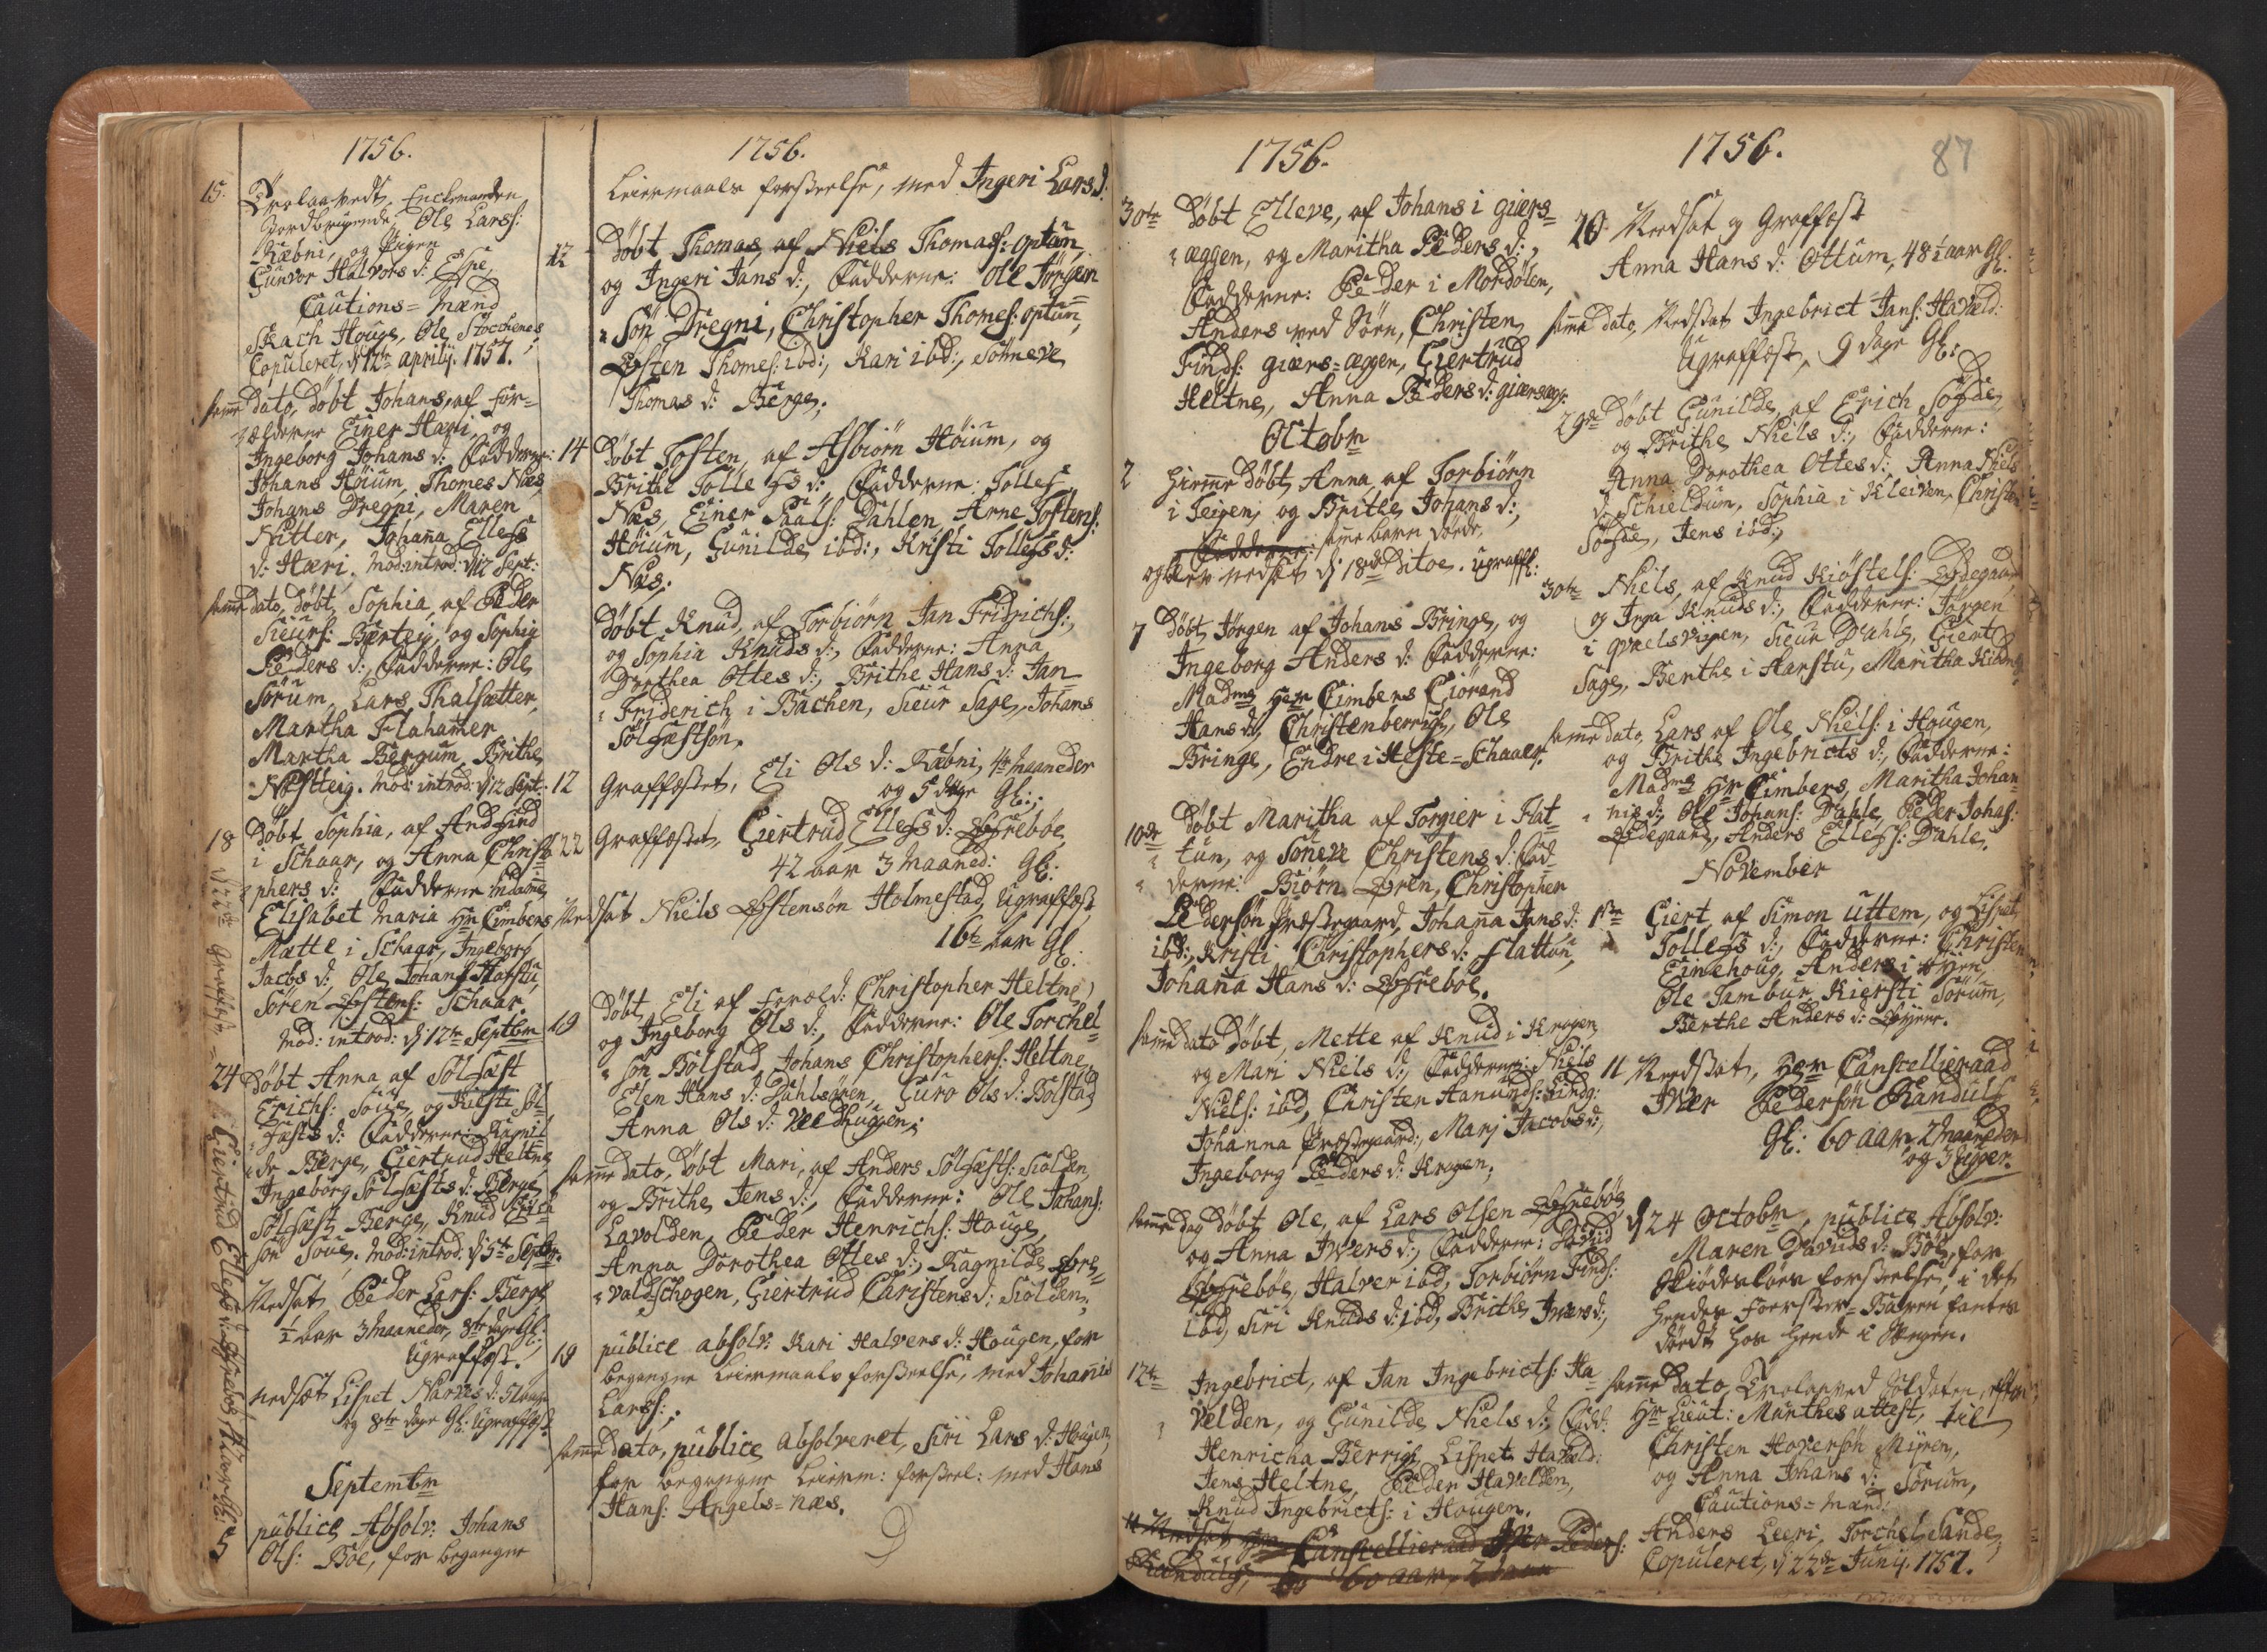 1756.
15. Trolaavedt, Enckemanden
Jordbrugende Ole Larss:
Ræbni, og Pigen
Gunvor Halvors d: Espe,
Cautions=Mænd
Skach Houge, Ole Stocchenes
Copuleret, d 12te aprily. 1757.
samme dato, døbt Johans, af for=
ælderne Einer Hæri, og
Ingeborg Johans d: Fadderne:
Johans Høium, Thomes Næs,
Johans Dregni, Maren
Nitler, Johanna Ellefs
d: Hæri. Mod: introd: d 12 Sept:
samme dato, døbt Sophia af Peder
Sieurs: Berteig, og Sophia
Peders d: Fadderne: Ole
Sørum, Lars Thalsætter,
Martha Flahamer
Martha Bergum, Brithe
Næstteig. Mod: introd: d 12 Sept:
18 Døbt Sophia, af Andfind
i Schaar, og Anna Christo
phers d: Fadderne Madame
Elisabet Maria Hr Cimbers
Mætte i Schaar, Ingeborg
Jacobs d: Ole Johans: Harstu,
Søren Østens: Schaar
Mod: introd: d 12te Septbr
24 Døbt Anna af Sølfæst
Erichs: Soue, og Kirsti Søl=
fæsts d: Fadderne: Ragnil
de Berge, Giertrud Heltne
Ingeborg Sølfæsts d: Berge
Sølfæst Berge, Knud
søn Soue. Mod: introd: d 5te Septbr.
Nedsat Peder Lars: Berge
½ aar 3 maaneder, 8te dage Gl:
Ugraffæst.
Nedsæt Lispet Narves d:
og 8te dage Gl: Ugraffæst
Septembr
publice Absolv: Johans
Ols: Böe, for begangne
d 22de Graffæst Giertrud Ellefs d: Øfrebøe,
1756.
Leiermaals forseelse, med Ingeri Lars d:
12 Døbt Thomas af Niels Thomass: optun,
og Ingeri Jans d:, Fadderne: Ole Jørgen
Søn Dregni, Christopher Thomes: optun,
Østen Thomes: ibd:, Kari ibd:, Sønneve
Thomas d: Berge.
14 Døbt Tosten af Asbiørn Høium, og
Brithe Tollefs d:, Fadderne: Tollef
Næs, Einer Pauls: Dahlen, Arne Tostens:
Høium, Gunilde ibd:, Kristi Tollefs d:
Næs.
Døbt Knud, af Torbiørn Jan Fridrichs:,
og Sophia Knuds d:, Fadderne: Anna
Dorthea Ottes d:, Brithe Hans d: Jan
Friderich i Bachen, Sieur Sage, Johans
Sølfæstsøn.
12 Graffæstet, Eli Ols d: Ræbni, 4re maaneder
og 5 dage Gl:
22 Graffæstet, Giertrud Ellefs d: Øfrebøe
42 aar 3 maaned: Gl:
Nedsat Niels Østensøn Holmestad, Ugraffæst
16te aar Gl:
19 Døbt Eli af foræld: Christopher Heltne,
og Ingeborg Ols d:, Fadderne: Ole Torchel
søn Bolstad, Johans Christophers: Heltne,
Elen Hans d: Dahlsøren, Guro Ols d: Bolstad
Anna Ols d: Vee Dhuggen.
samme dato, døbt Mari, af Anders Sølfæsts: Siolden,
og Brithe Jens d:, Fadderne: Ole Johans:
Lavolden, Peder Henrichs: Houge,
Anna Dorothea Ottes d:, Ragnilde Fors=
valdschogen, Giertrud Christens d: Siolden.
19 publice absolv: Kari Halvers d: Hougen, for
begangne Leiermaals forseelse, med Johannis
Larss:
samme dato, publice absolveret, Siri Lars d: Hougen,
for begangne Leierm: forseel: med Hans
Hans: Angels=næs.
1756.
30te Døbt Elleve, af Johans i giærs=
æggen, og Maritha Peders d:,
Fadderne: Peder i Mordølen,
Anders ved Sørn, Christen
Finds: giærs=æggen, Giertrud
Heltne, Anna Peders d: giærsegg:
Octobr
2 Hieme døbt Anna af Torbiørn
i Teigen, og Brithe Johans d:,
Fadderne: samme barn døde,
og blev nedsat d 18de Ditoe. Ugraffl:
7 Døbt Jørgen af Johans Bringe, og
Ingeborg Anders d: Fadderne:
Madme Herr Cimbers Giørand
Hans d:, Christenberrigh, Ole
Bringe, Endre i Heste=Schaaler.
10de Døbt Maritha af Torgier i Flat
tun, og Søneve Christens d: Fad
derne: Biørn Øren, Christopher
Pedersøn Præstegaard, Johanna Jans d:
ibd:, Kristi Christophers d: Flattun,
Johana Hans d: Øfrebøe.
samme dato døbt Mette af Knud i Kragen,
og Mari Niels d:, Fadderne: Niels
Niels: ibd, Christen Hanunds: Lindg:
Johanna Præstegaard:, Marj Jacobs d:,
Ingeborg Peders d: Kragen.
samme dag døbt Ole, af Lars Olsen Øfrebøe,
og Anna Iwers d:, Fadderne: David
Øfrebøe, Halver ibd, Torbiørn Finds:
ibd, Siri Knuds d: ibd, Brithe Iwers d:
12te Ingebrict, af Jan Ingebricts: Ha
velden, og Gunilde Niels d:, Fadd:
Henricha Berrigh, Lispet Havæld:
Jens Heltne, Peder Havælden,
Knud Ingebricts: i Hougen.
11 Nedsat Herr Cancellieraad Iver Peders:
Randulf, 60 aar, 2 maan
1756. 87
20. Nedsat og Graffæst
Anna Hans d: Ottum, 48 ½ aar Gl:
samme dato, Nedsat Ingebrict Jans: Havæld:
Ugraffæst, 9 dage Gl:
29de Døbt Gunilde, af Erich Sogde
og Brithe Niels d:, Fadderne:
Anna Dorothea Ottes d: Anna Niels
d: Schieldun, Sophia i Kleiven, Christen
Sogde, Jens ibd:,
30te Niels, af Knud Kiøstels: Ødegaard
og Inga Knuds d:, Fadderne: Jørgen
i qvaelsviigen, Sieur Dahle, Giert
Sage, Berthe i Harstu, Maritha
samme dato, Lars af Ole Niels: i Hougen,
og Brithe Ingebricts d:, Fadderne:
Madme Hr Cimbers, Maritha Johan
nis d:, Ole Johans: Dahle, Peder Johas:
Ødegaard, Anders Ellefs: Dahle.
November
1ste Giert, af Simon Uttem, og Lispet
Tollefs d:, Fadderne: Christen
Einehoug, Anders i Øyen,
Ole Tambur, Kiersti Sørum,
Berthe Anders d: Øyene.
11 Nedsat, Herr Cancellieraad
Iver Pedersøn Randulf
Gl: 60 aar, 2 maaneder
og 3 Uger.
d 24 Octobr, publice Absolv:
Maren Davids d: Böe, for
Skiødesløes forseelse, i det
hendes Foerster=Barn fantes
dødt hos hende i Sengen.
samme dato, Trolaaved Soldaten, efter
Hr Lieut: Munthes attest, til
Christen Haversøn Myren,
og Anna Johans d: Sørum,
Cautions=Mænd:
Anders Leeri, Torchel Sande,
Copuleret, d 22de Junij. 1757.